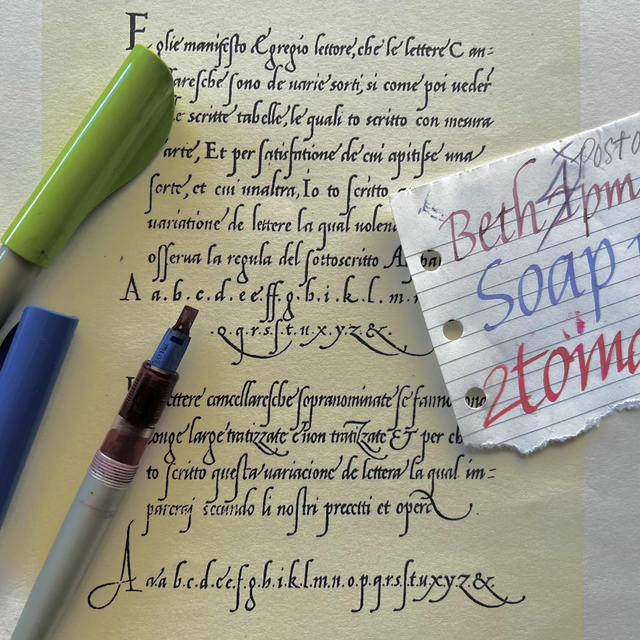 E glie manifesto Egregio lettore, che le lettere Can=
sono de uarie sorti, si come poi ueder
scritte tabelle, le quali to scritto con mesura
arte, Et per satisfatione de cui apitisse una
sorte, et cui unaltra, Io to scritto
uariatione de lettere la qual
osserua la regula del sottoscritto
A a.b.c.d.e e.ff.g.h.i.k.l.m.
.o.q.r.s.ſ.t.u.x.y.z.&.
cancellaresche sopranominate se
large tratizzate e non tratizate et per
to scritto questa uariacione de lettera la qual im=
secundo li nostri precetti et opere
A a.a.b.c.d.e.e.f.g.h.i.k.l.m.n.o.p.q.r.s.ſ.t.u.x.y.z.&.
Beth pm
Soap